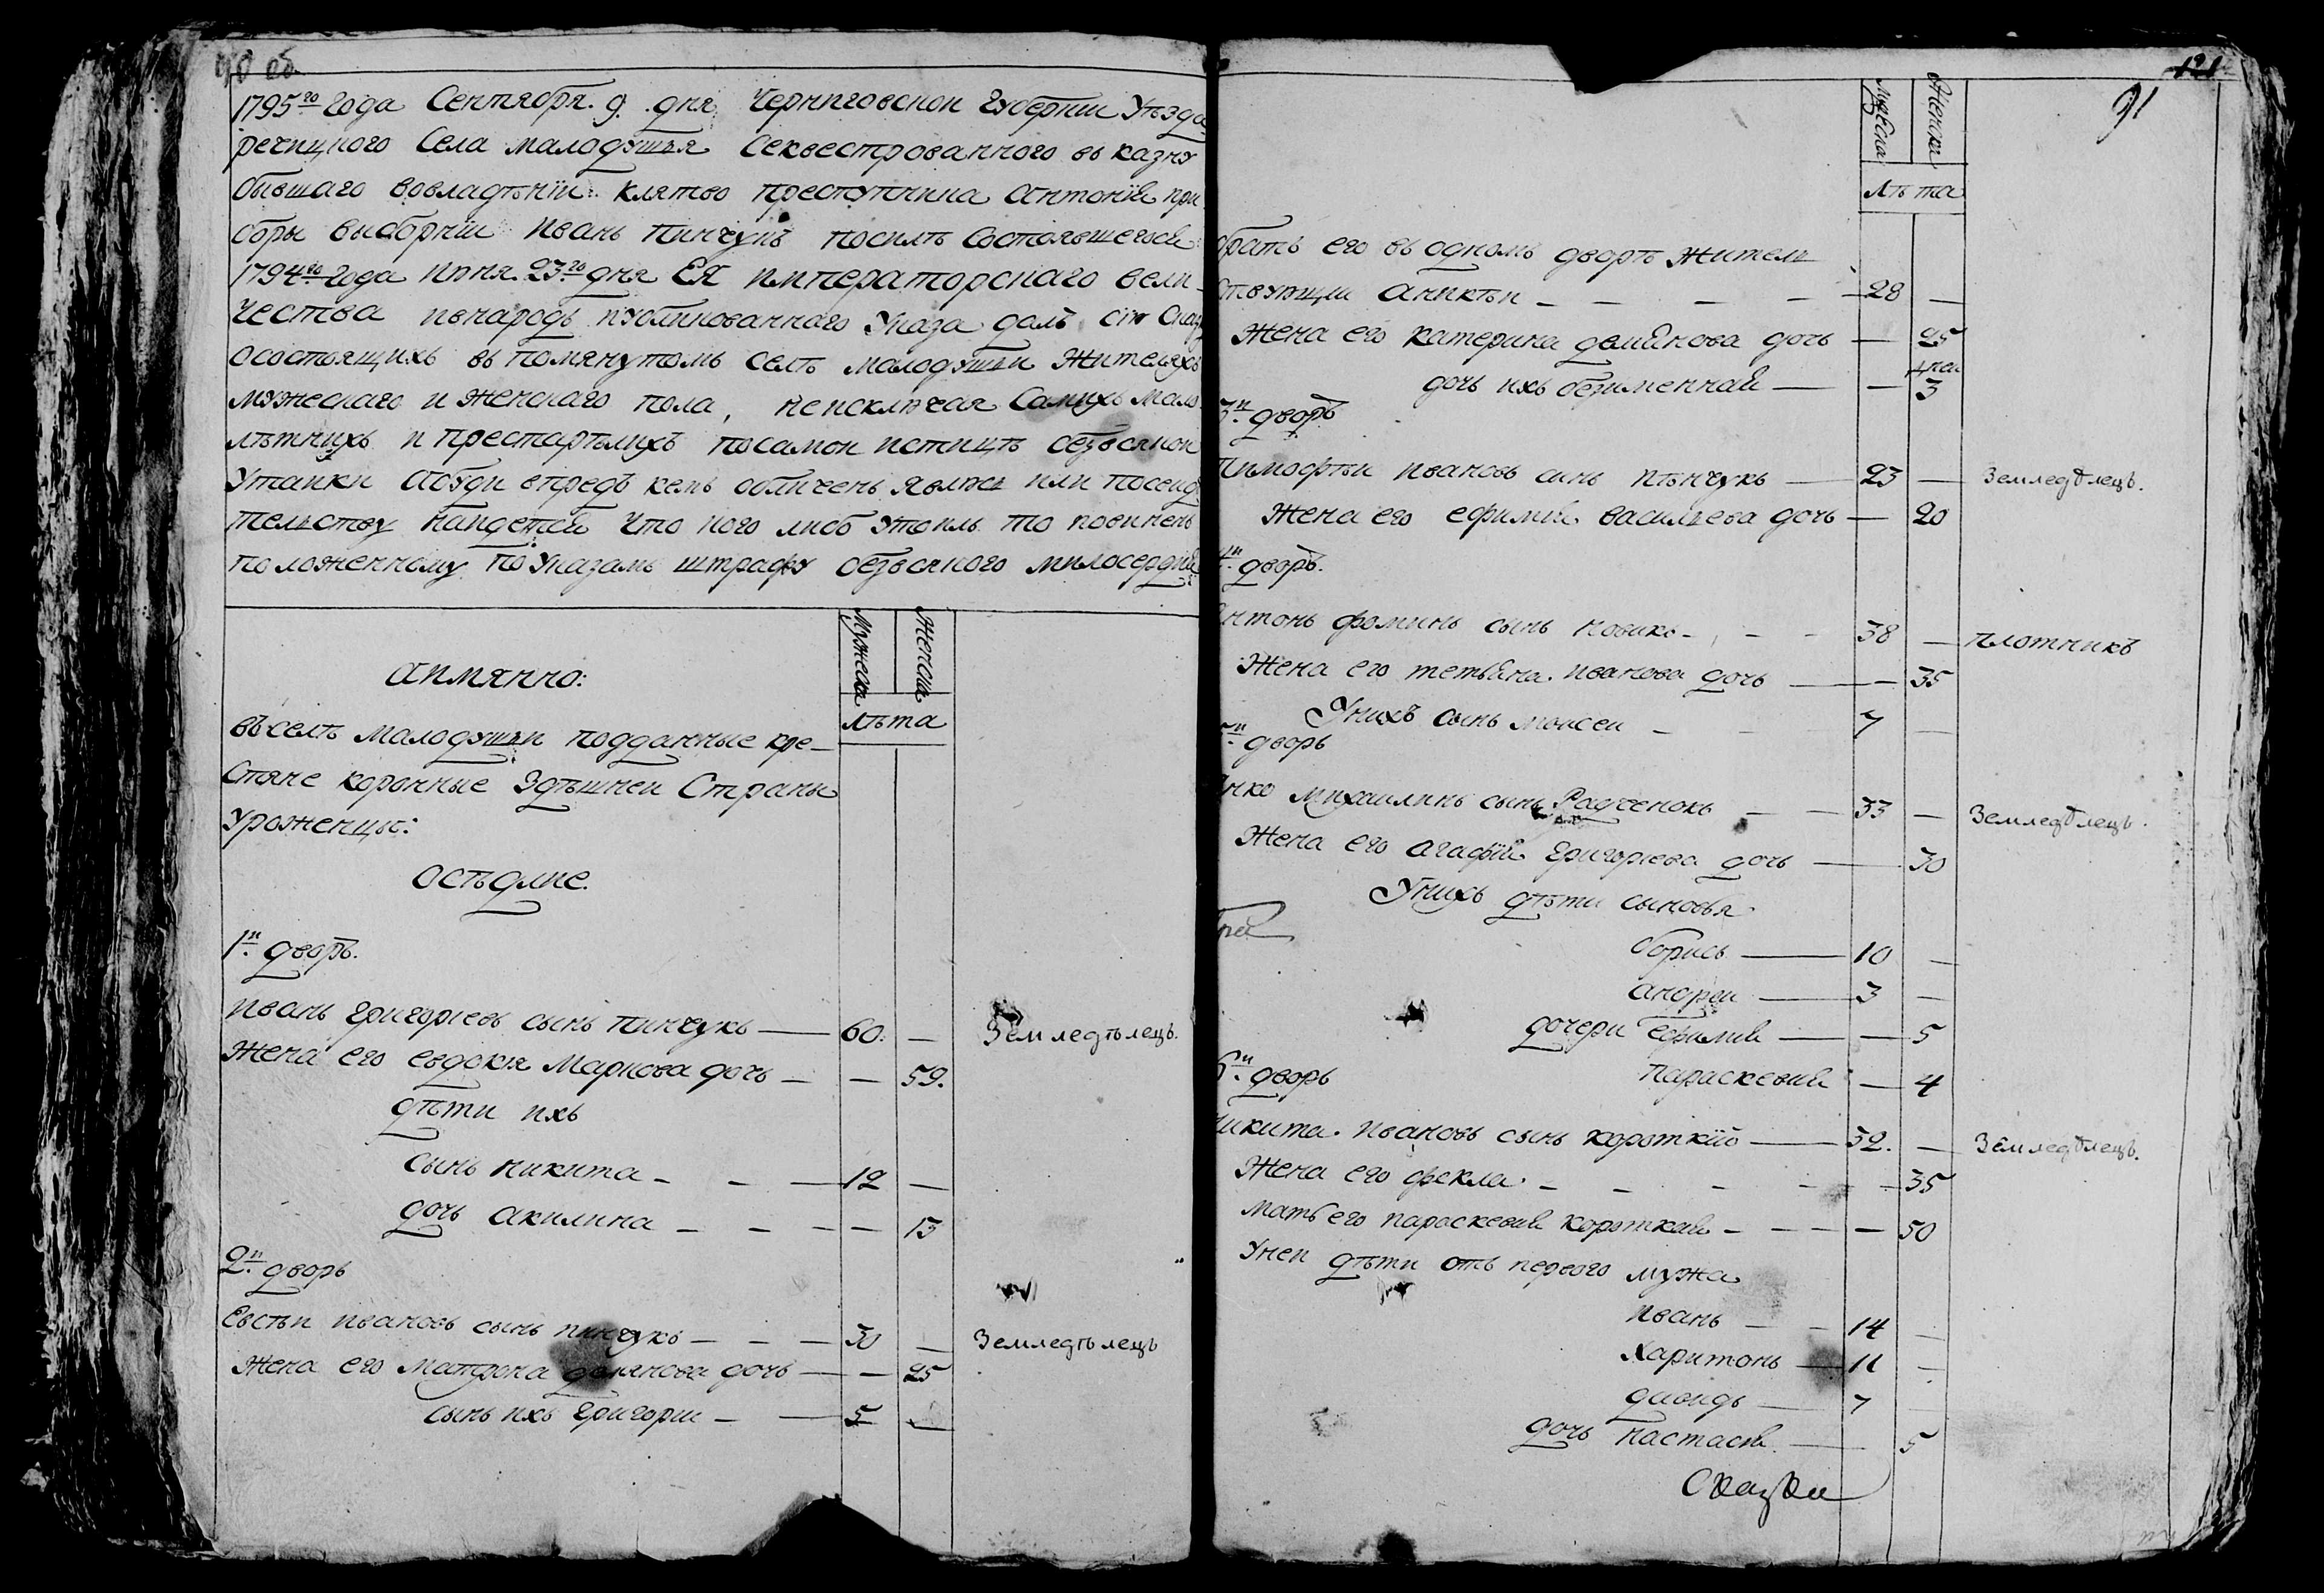 90 об.
1795го года Сентября 9 дня Черниговской Губернии Уѣзда
речицкого Села малодушья Секвестрованного въ казну
бывшаго вовладѣніи клятво преступника Антонія при
боры выборніи иванъ пинчукъ посилѣ Состоявшегося
1794го года июня 23го дня Ея императорскаго вели-
чества ивнародъ публикованнаго Указа далъ сию Сказ
осостоящихъ въ помянутомъ селѣ малодушьи жителяхъ
мужескаго и женскаго пола, неисключая Самихъ мало
лѣтнихъ и престарѣлихъ посамои истицнѣ безвсякои
Утаики Абуди впредъ кемъ обличенъ явлюсь или посвид
телству наидется что кого либо Утоилъ то повиненъ
положенному поУказамъ штрафу безвсякого милосердия
Мужеска
Женска
лѣта
аимянно:
въселѣ малодушьи подданные кре-
стяне коронные Здѣшнеи Страны
Уроженцы:
осѣдлие.
1и дворъ.
иванъ григориевъ сынъ пинчукъ — 60. — Земледѣлецъ.
жена его евдокия Маркова дочь — — 59.
дѣти ихъ
сынъ никита — 12 —
дочь акилина — — 13
2и дворъ
Евстѣи ивановъ сынъ пинчукъ — 30 — Земледѣлецъ
жена его матрона демянова дочь — — 25
сынъ ихъ григории — 5 —
121
91
Мужеска
Женска
лѣта
братъ его въ одномъ дворѣ жителъ
ствующи аникѣи — 28 —
жена его катерина демянова дочь — 25
дочь ихъ безименная — — 3
3и дворъ
Тимофѣи ивановъ синъ пѣнчукъ — 23 — Земледѣлецъ.
жена его ефимия василъева дочь — 20
4и дворъ.
Антонъ фоминъ сынъ новикъ — 38 — плотникъ
жена его тетьяна иванова дочь — — 35
Унихъ сынъ моисеи — 7 —
5и дворъ
Янко михаилинъ сынъ — 33 — Земледѣлецъ.
Жена его агафия григориева дочь — 30
Унихъ дѣти сыновья
борисъ — 10 —
андреи — 3 —
дочери ефимия — — 5
параскевия — 4
6и дворъ
Никита ивановъ сынъ короткий — 32. — Земледѣлецъ.
Жена его фекла — — 35
Мать его параскевия короткая — — 50
Унеи дѣти отъ первого мужа
иванъ — 14 —
харитонъ — 11 —
давидъ — 7
дочь настасия — 5
Сказки